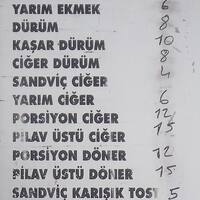 YARIM EKMEK 6
DÜRÜM 8
KAŞAR DÜRÜM 10
CİĞER DÜRÜM 8
SANDVİÇ CİĞER 4
YARIM CİĞER 6
PORSİYON CİĞER 12
PİLAV ÜSTÜ CİĞER 15
PORSİYON DÖNER 12
PİLAV ÜSTÜ DÖNER 15
SANDVİÇ KARIŞIK TOST 5